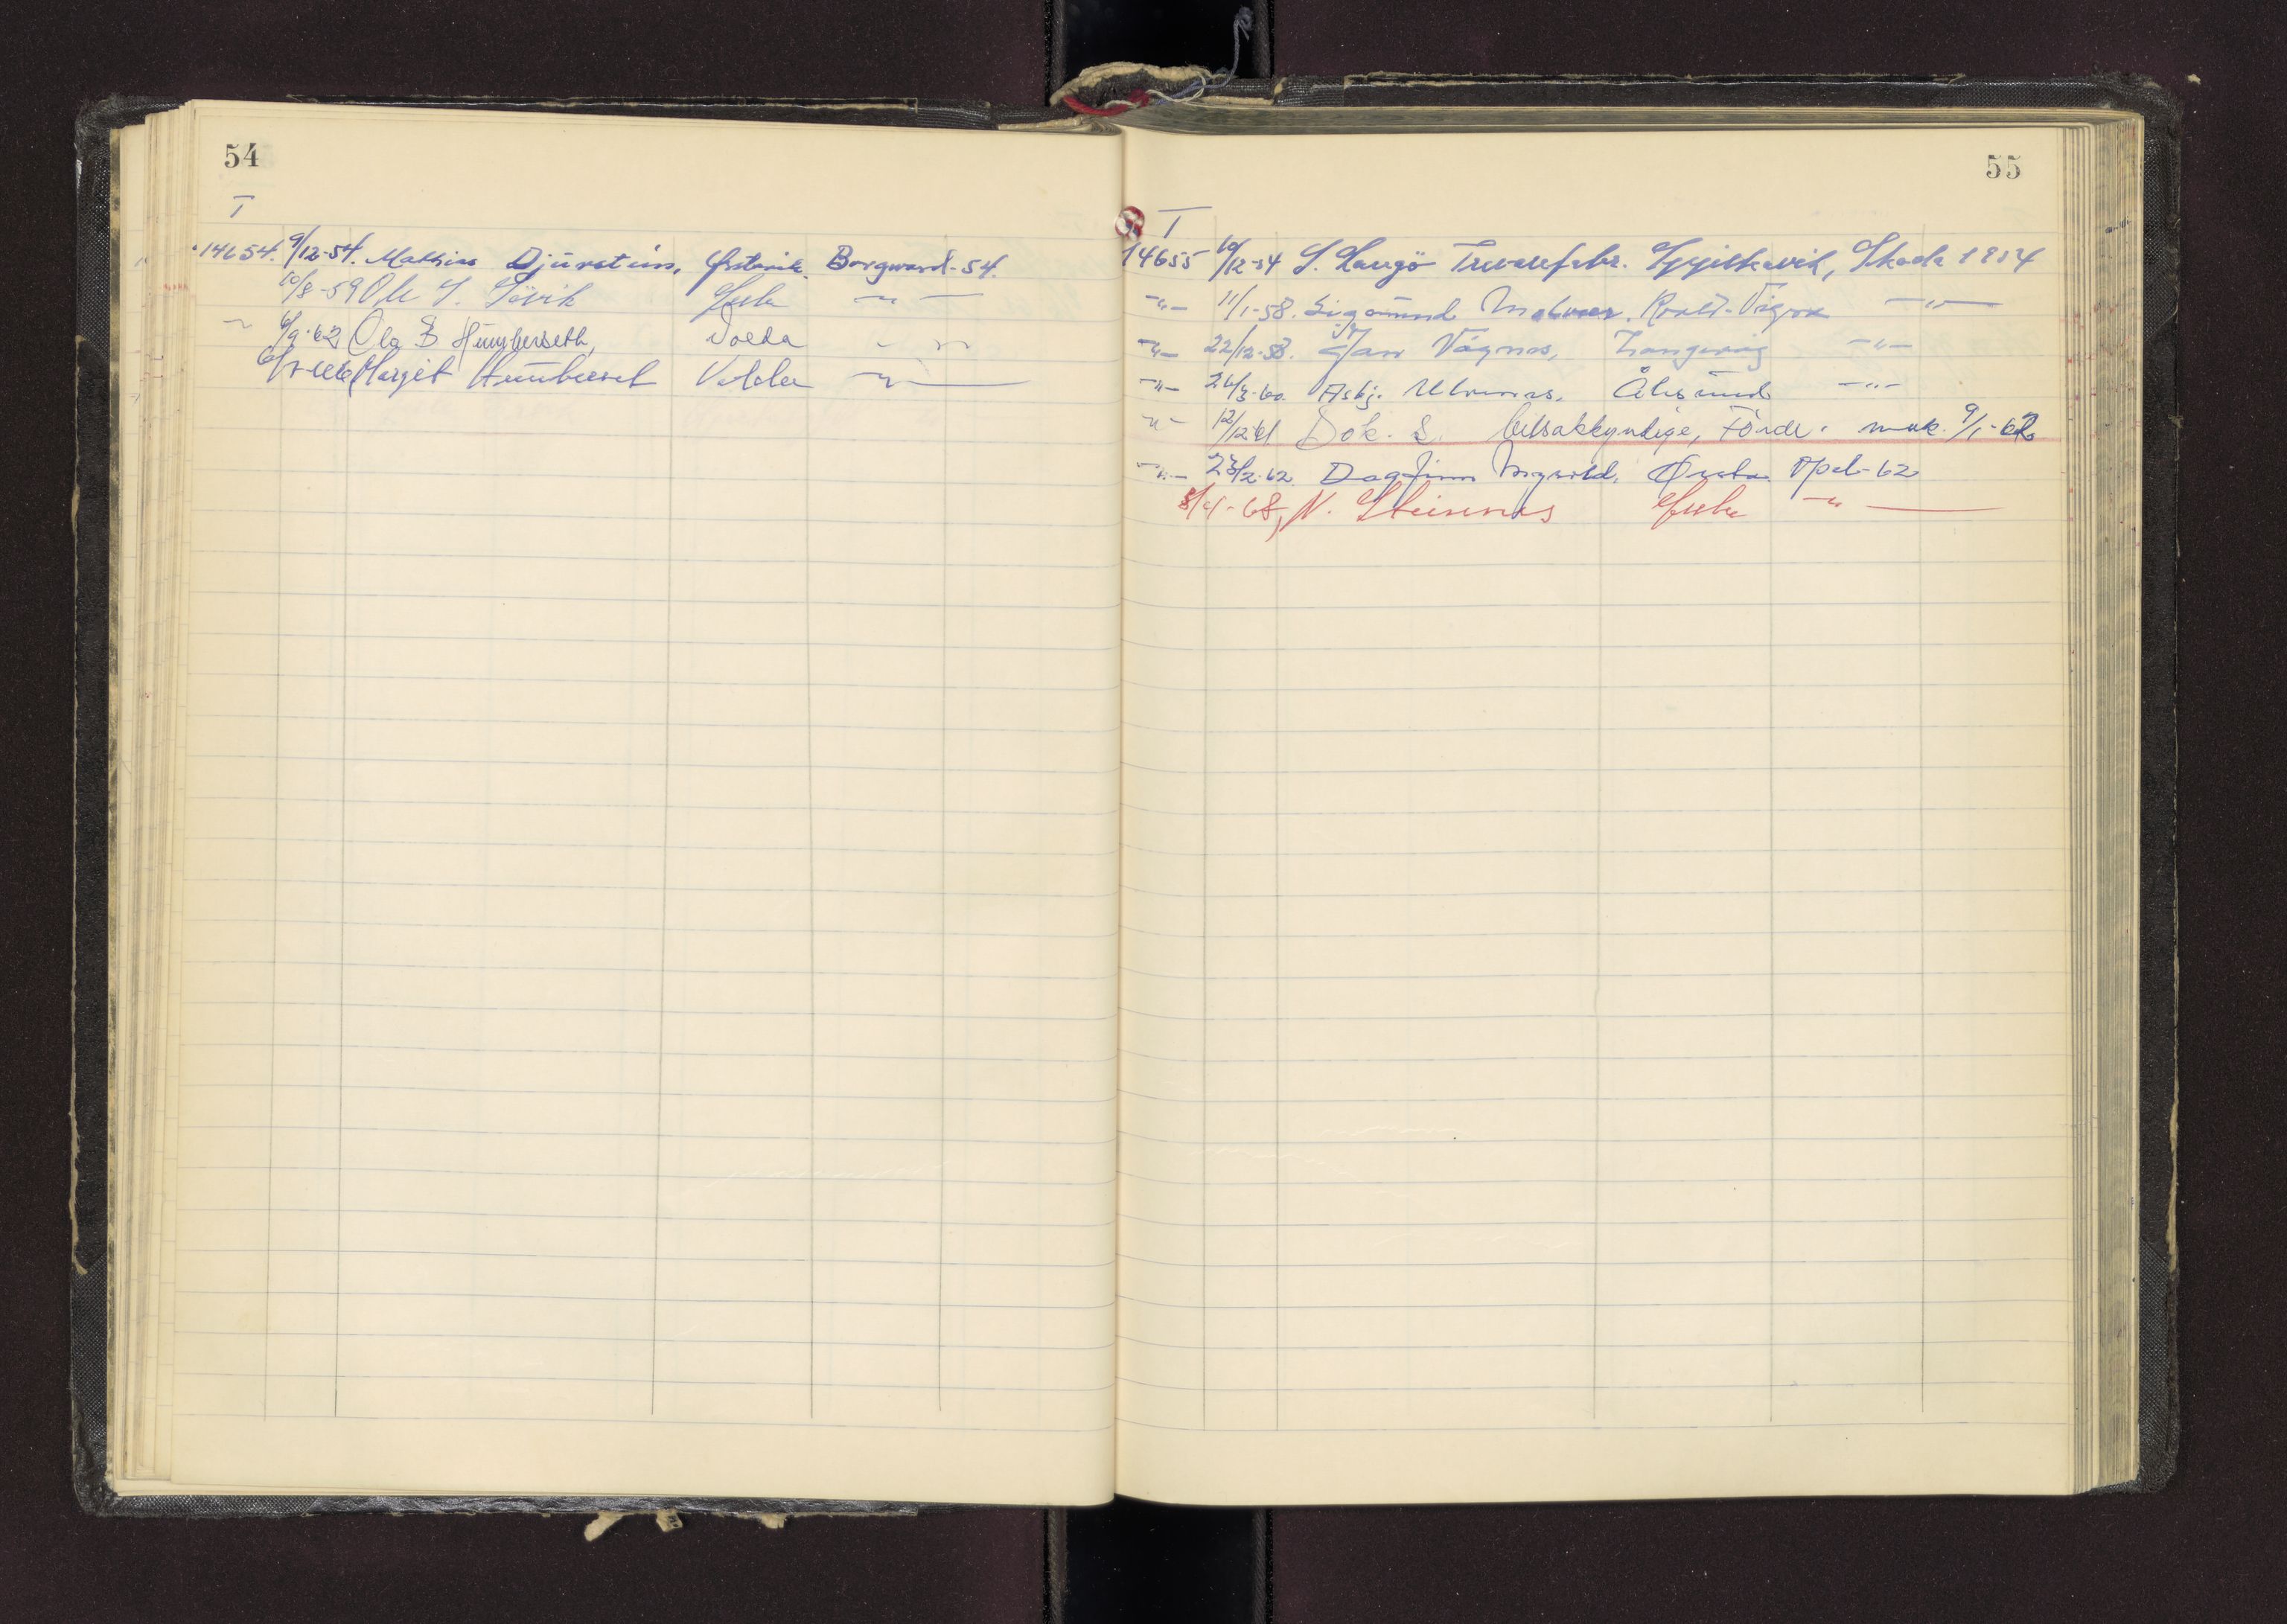 54
T
14654. 9/12-54. Mathias Djurstein, Ørstavik. Borgward-54.
10/8-59 Ole S. Søvik -"-
-"- 6/9-62 Ola B Humberseth, Volda -"-
Margit Humberset Volda -"-
55
T
14655 10/12-54 S. Langø Trevarefabr. Syvikervik, Skoda 1954
-"- 11/1-58. Sigmund Molvær. Roald-Vigra -"-
-"- 22/12-58. Jan Vågnes, Langevåg -"-
-"- 26/3-60. Asbj. Ulvenes. Ålesund -"-
-"- 12/12-61 Dok. s. bilsakkyndige, Førde. mak. 9/1-62
-"- 23/2-62 Dagfinn Myrold, Ørsta Opel-62
5/4-68, N. Steinnes -"-